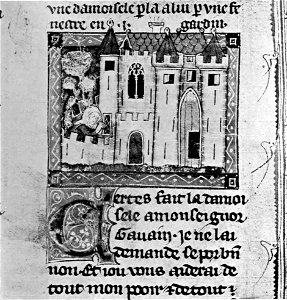 vne damoisele p la a lui p vne fe
nestre en .i. gardin.
Certes fait la damoi
sele a monseignor
Gauain . je ne lai
demande se por bn
non. Et iou vous aiderai de
tout mon pooir & de tout